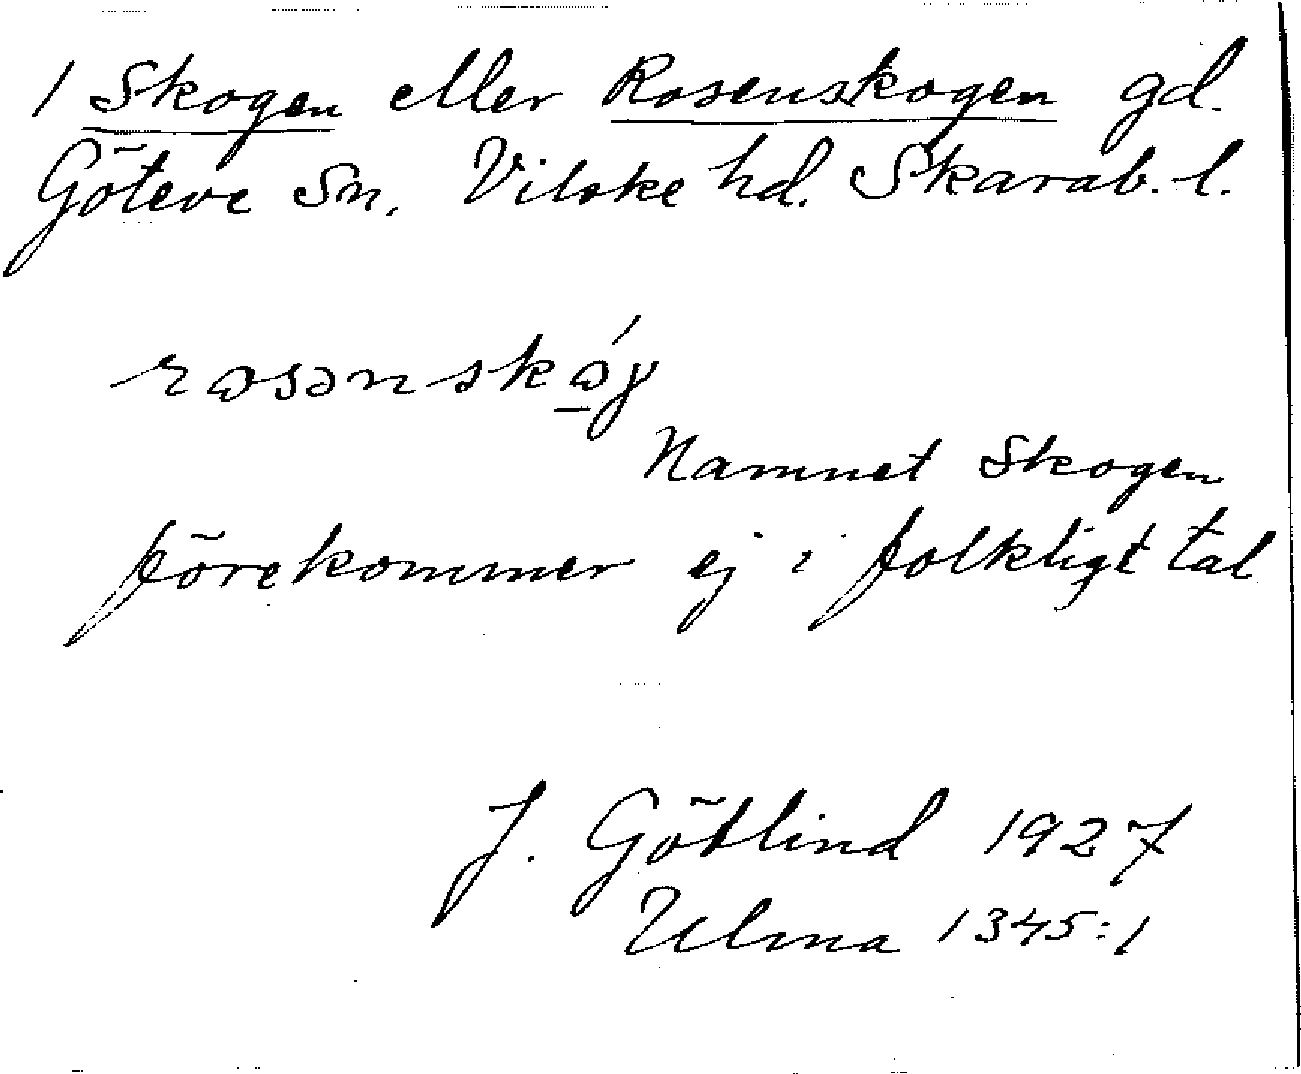 1 Skogen eller Rosenskogen gd.
Göteve Sn. Vilske hd. Skarab. l.
rosənskóγ
Namnet Skogen
förekommer ej i folkligt tal
J. Götlind 1927
Ulma 1345:1